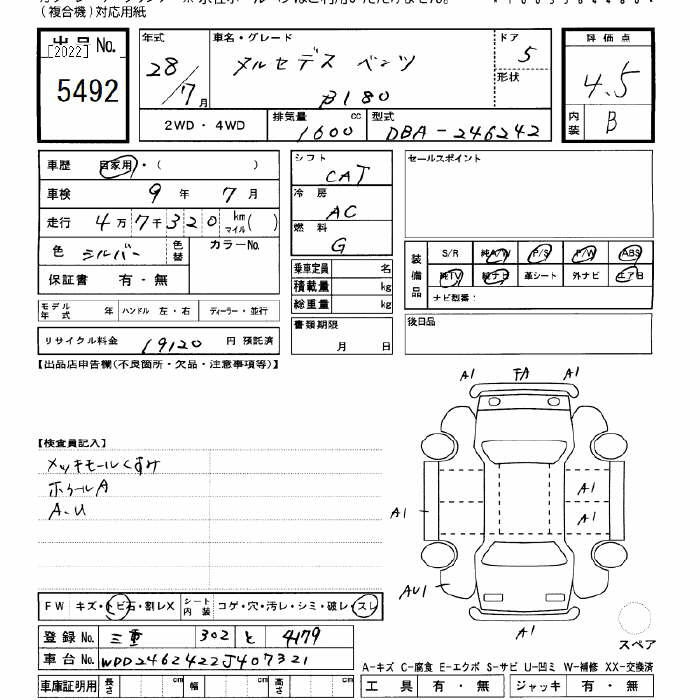 (複合機)対応用紙
出品No.
[2022]
5492
年式
28/7月
車名・グレード
メルセデス ベンツ
B180
ドア
5
形状
評価点
4.5
内装
B
2WD・4WD
排気量
1600 cc
型式
DBA-246242
車歴 自家用・( )
車検 9年 7月
走行 4万7千320 km マイル( )
色 シルバー 色替 カラーNo.
保証書 有・無
モデル年式 年 ハンドル 左・右 ディーラー・並行
リサイクル料金 19120 円 預託済
シフト
CAT
冷房
AC
燃料
G
乗車定員 名
積載量 kg
総重量 kg
書類期限
月 日
セールスポイント
装備品
S/R 純A/W P/S P/W ABS
純TV 純ナビ 革シート 外ナビ エアB
ナビ型番:
後日品
【出品店申告欄(不良箇所・欠品・注意事項等)】
【検査員記入】
メッキモールくすみ
ホイールA
A・U
A1 FA A1
A1
A1
A1
AU1
A1
スペア
FW キズ・トビ石・割レX シート内装 コゲ・穴・汚レ・シミ・破レ・スレ
登録No. 三重 302 と 4179
車台No. WDD2462422J407321
車庫証明用 長さ cm 幅 cm 高さ cm
A-キズ C-腐食 E-エクボ S-サビ U-凹ミ W-補修 XX-交換済
工具 有・無 ジャッキ 有・無